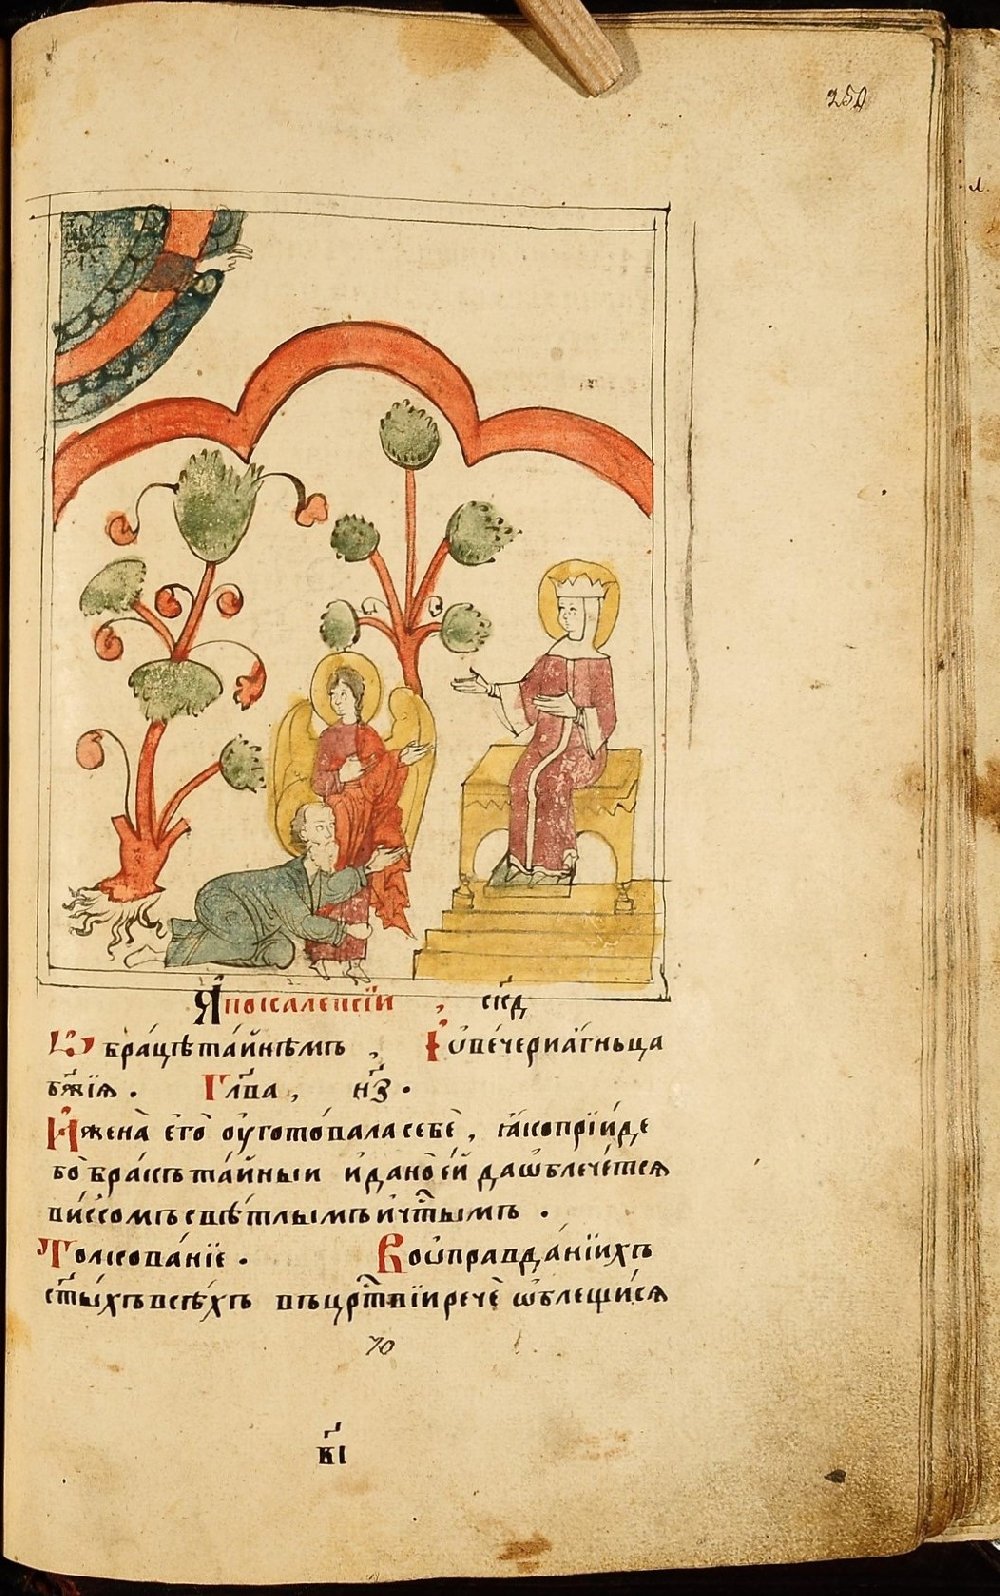 250
Апокалеѱїи , скд
О бра́цѣ та́йнѣмъ , и҆ ѻ҆ ве́чери а҆́гньца
бж҃їѧ . Глава , н҃з .
И҆ жена̀ є҆го̀ ᲂу҆гото́вала себѐ , ꙗ҆́ко прїи́де
бо̀ бра́къ та́йныи и҆ дано̀ є҆́й да ѡ҆блече́тсѧ
ви́ссомъ свѣ́тлымъ и҆ чⷭ҇тымъ .
Толкова́нїе . Во ѡ҆правда́нїихъ
ст҃ы́хъ всѣ́хъ въ црⷭ҇твїи речѐ ѡ҆блещи́сѧ
70
в҃і